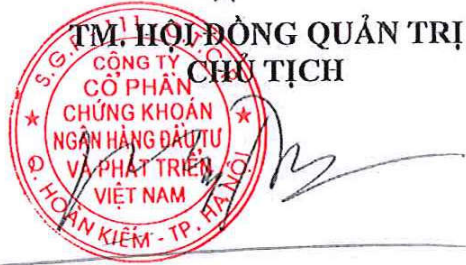 TM. HỘI ĐỒNG QUẢN TRỊ
CHỦ TỊCH
CÔNG TY
CỔ PHẦN
CHỨNG KHOÁN
NGÂN HÀNG ĐẦU TƯ
VÀ PHÁT TRIỂN
VIỆT NAM
Q. HOÀN KIẾM - TP. HÀ NỘI